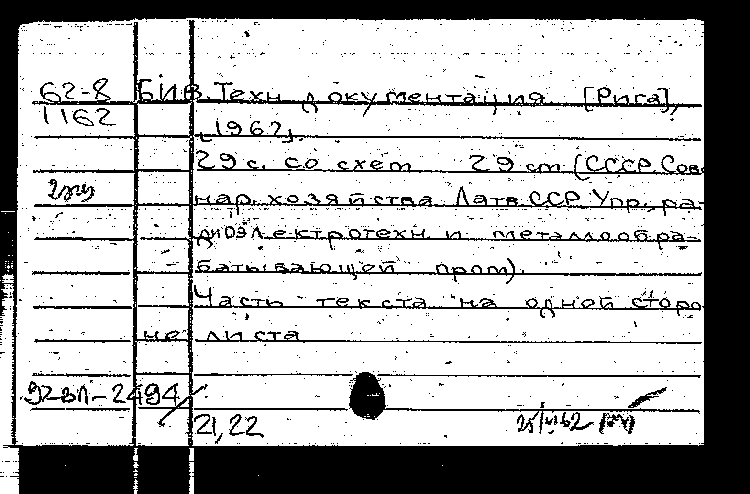 62-8 БИФ. Техн документация. [Рига],
1162
[1962].
29 с. со схем 29 см (СССР. Сов
2 экз
нар. хозяйства Латв. ССР. Упр. ра-
диоэлектротехн и металлообра-
батывающей пром).
Часть текста на одной сторо
не листа
92вл-2494
21,22
62